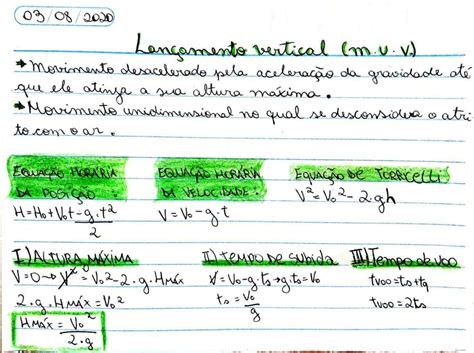 03/08/2020
Lançamento vertical (m.u.v.)
→ Movimento desacelerado pela aceleração da gravidade até
que ele atinja a sua altura máxima.
→ Movimento unidimensional no qual se desconsidera o atri
to com o ar.
EQUAÇÃO HORÁRIA DA POSIÇÃO
H=H₀+V₀t-g.t²/2
EQUAÇÃO HORÁRIA DA VELOCIDADE:
V=V₀-g.t
EQUAÇÃO DE TORRICELLI
V²=V₀²-2.gh
I) ALTURA MÁXIMA
V=0→V²=V₀²-2.g.HMÁX
2.g.HMÁX=V₀²
HMÁX=V₀²/2.g
II) TEMPO DE SUBIDA
V=V₀-g.ts→g.ts=V₀
ts=V₀/g
III) Tempo de voo
tvoo=ts+tq
tvoo=2ts